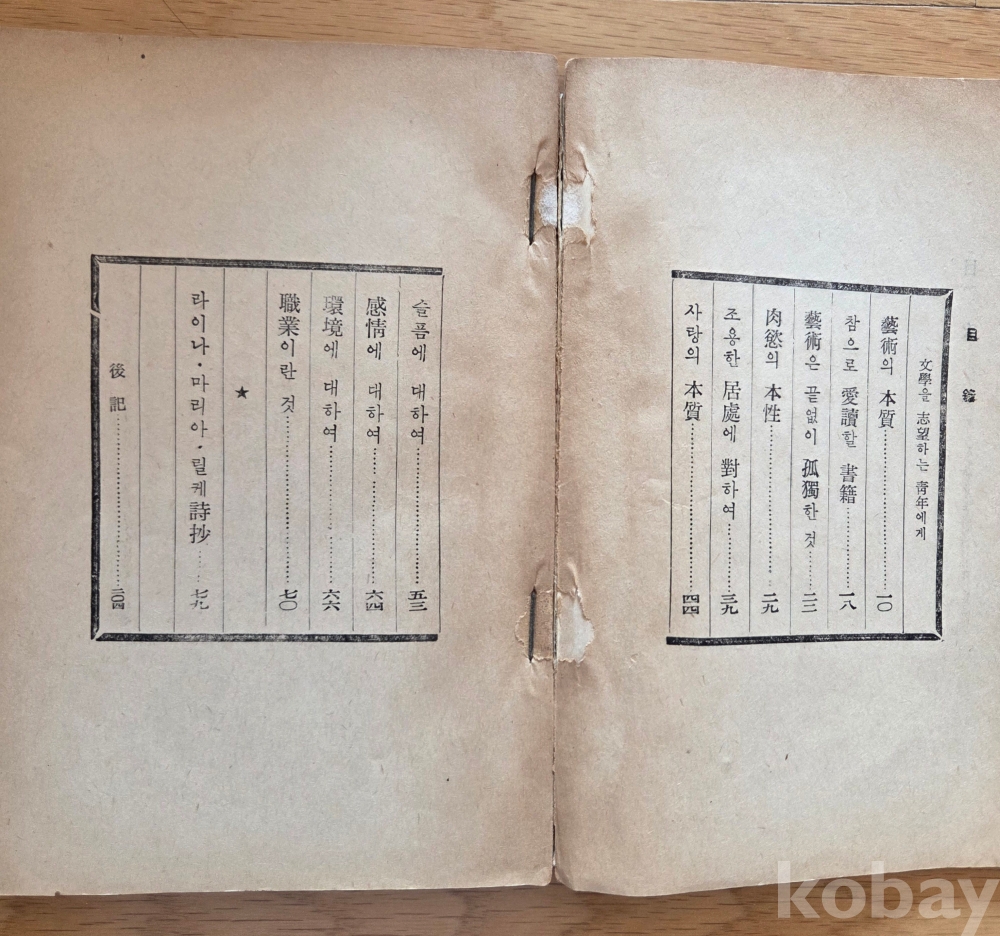 目錄
文學을 志望하는 靑年에게
藝術의 本質 一〇
참으로 愛讀할 書籍 一八
藝術은 끝없이 孤獨한 것 二三
肉慾의 本性 二九
조용한 居處에 對하여 三九
사랑의 本質 四四
슬픔에 대하여 五三
感情에 대하여 六四
環境에 대하여 六六
職業이란 것 七〇
★
라이나・마리아・릴케詩抄 七九
後記 二〇四
kobay